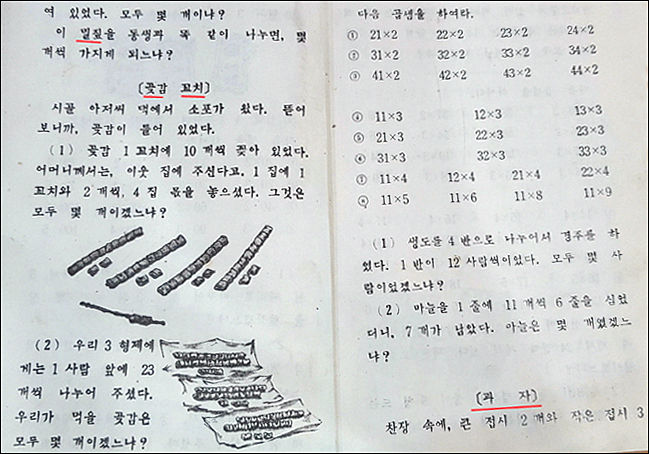 여 있었다. 모두 몇 개이냐?
이 밀짚을 동생과 똑 같이 나누면, 몇
개씩 가지게 되느냐?
〔곶감 꼬치〕
시골 아저씨 댁에서 소포가 왔다. 뜯어
보니까, 곶감이 들어 있었다.
(1) 곶감 1꼬치에 10개씩 꽂아 있었다.
어머니께서는, 이웃 집에 주신다고, 1집에 1
꼬치와 2개씩, 4집 몫을 놓으셨다. 그것은
모두 몇 개이겠느냐?
(2) 우리 3형제에
게는 1사람 앞에 23
개씩 나누어 주셨다.
우리가 먹을 곶감은
모두 몇 개이겠느냐?
다음 곱셈을 하여라.
① 21×2 22×2 23×2 24×2
② 31×2 32×2 33×2 34×2
③ 41×2 42×2 43×2 44×2
④ 11×3 12×3 13×3
⑤ 21×3 22×3 23×3
⑥ 31×3 32×3 33×3
⑦ 11×4 12×4 21×4 22×4
⑧ 11×5 11×6 11×8 11×9
(1) 생도를 4반으로 나누어서 경주를 하
였다. 1반이 12사람씩이었다. 모두 몇 사
람이었겠느냐?
(2) 마늘을 1줄에 11개씩 6줄을 심었
더니, 7개가 남았다. 마늘은 몇 개였겠느
냐?
〔과 자〕
찬장 속에, 큰 접시 2개와 작은 접시 3